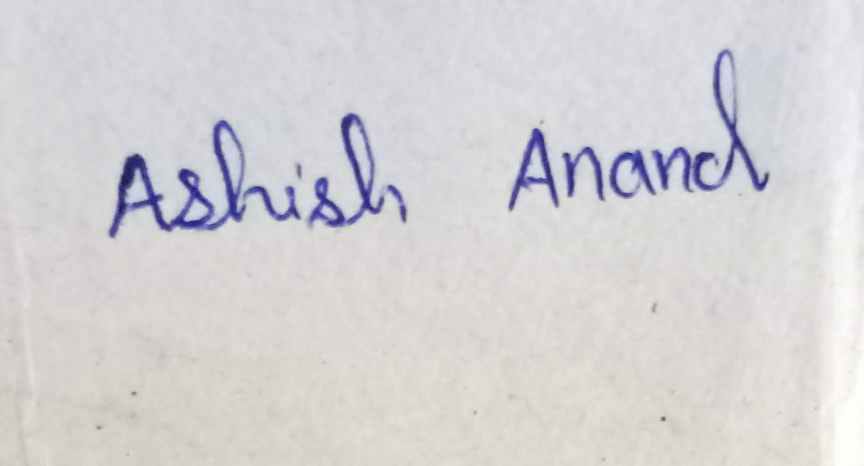 Ashish Anand